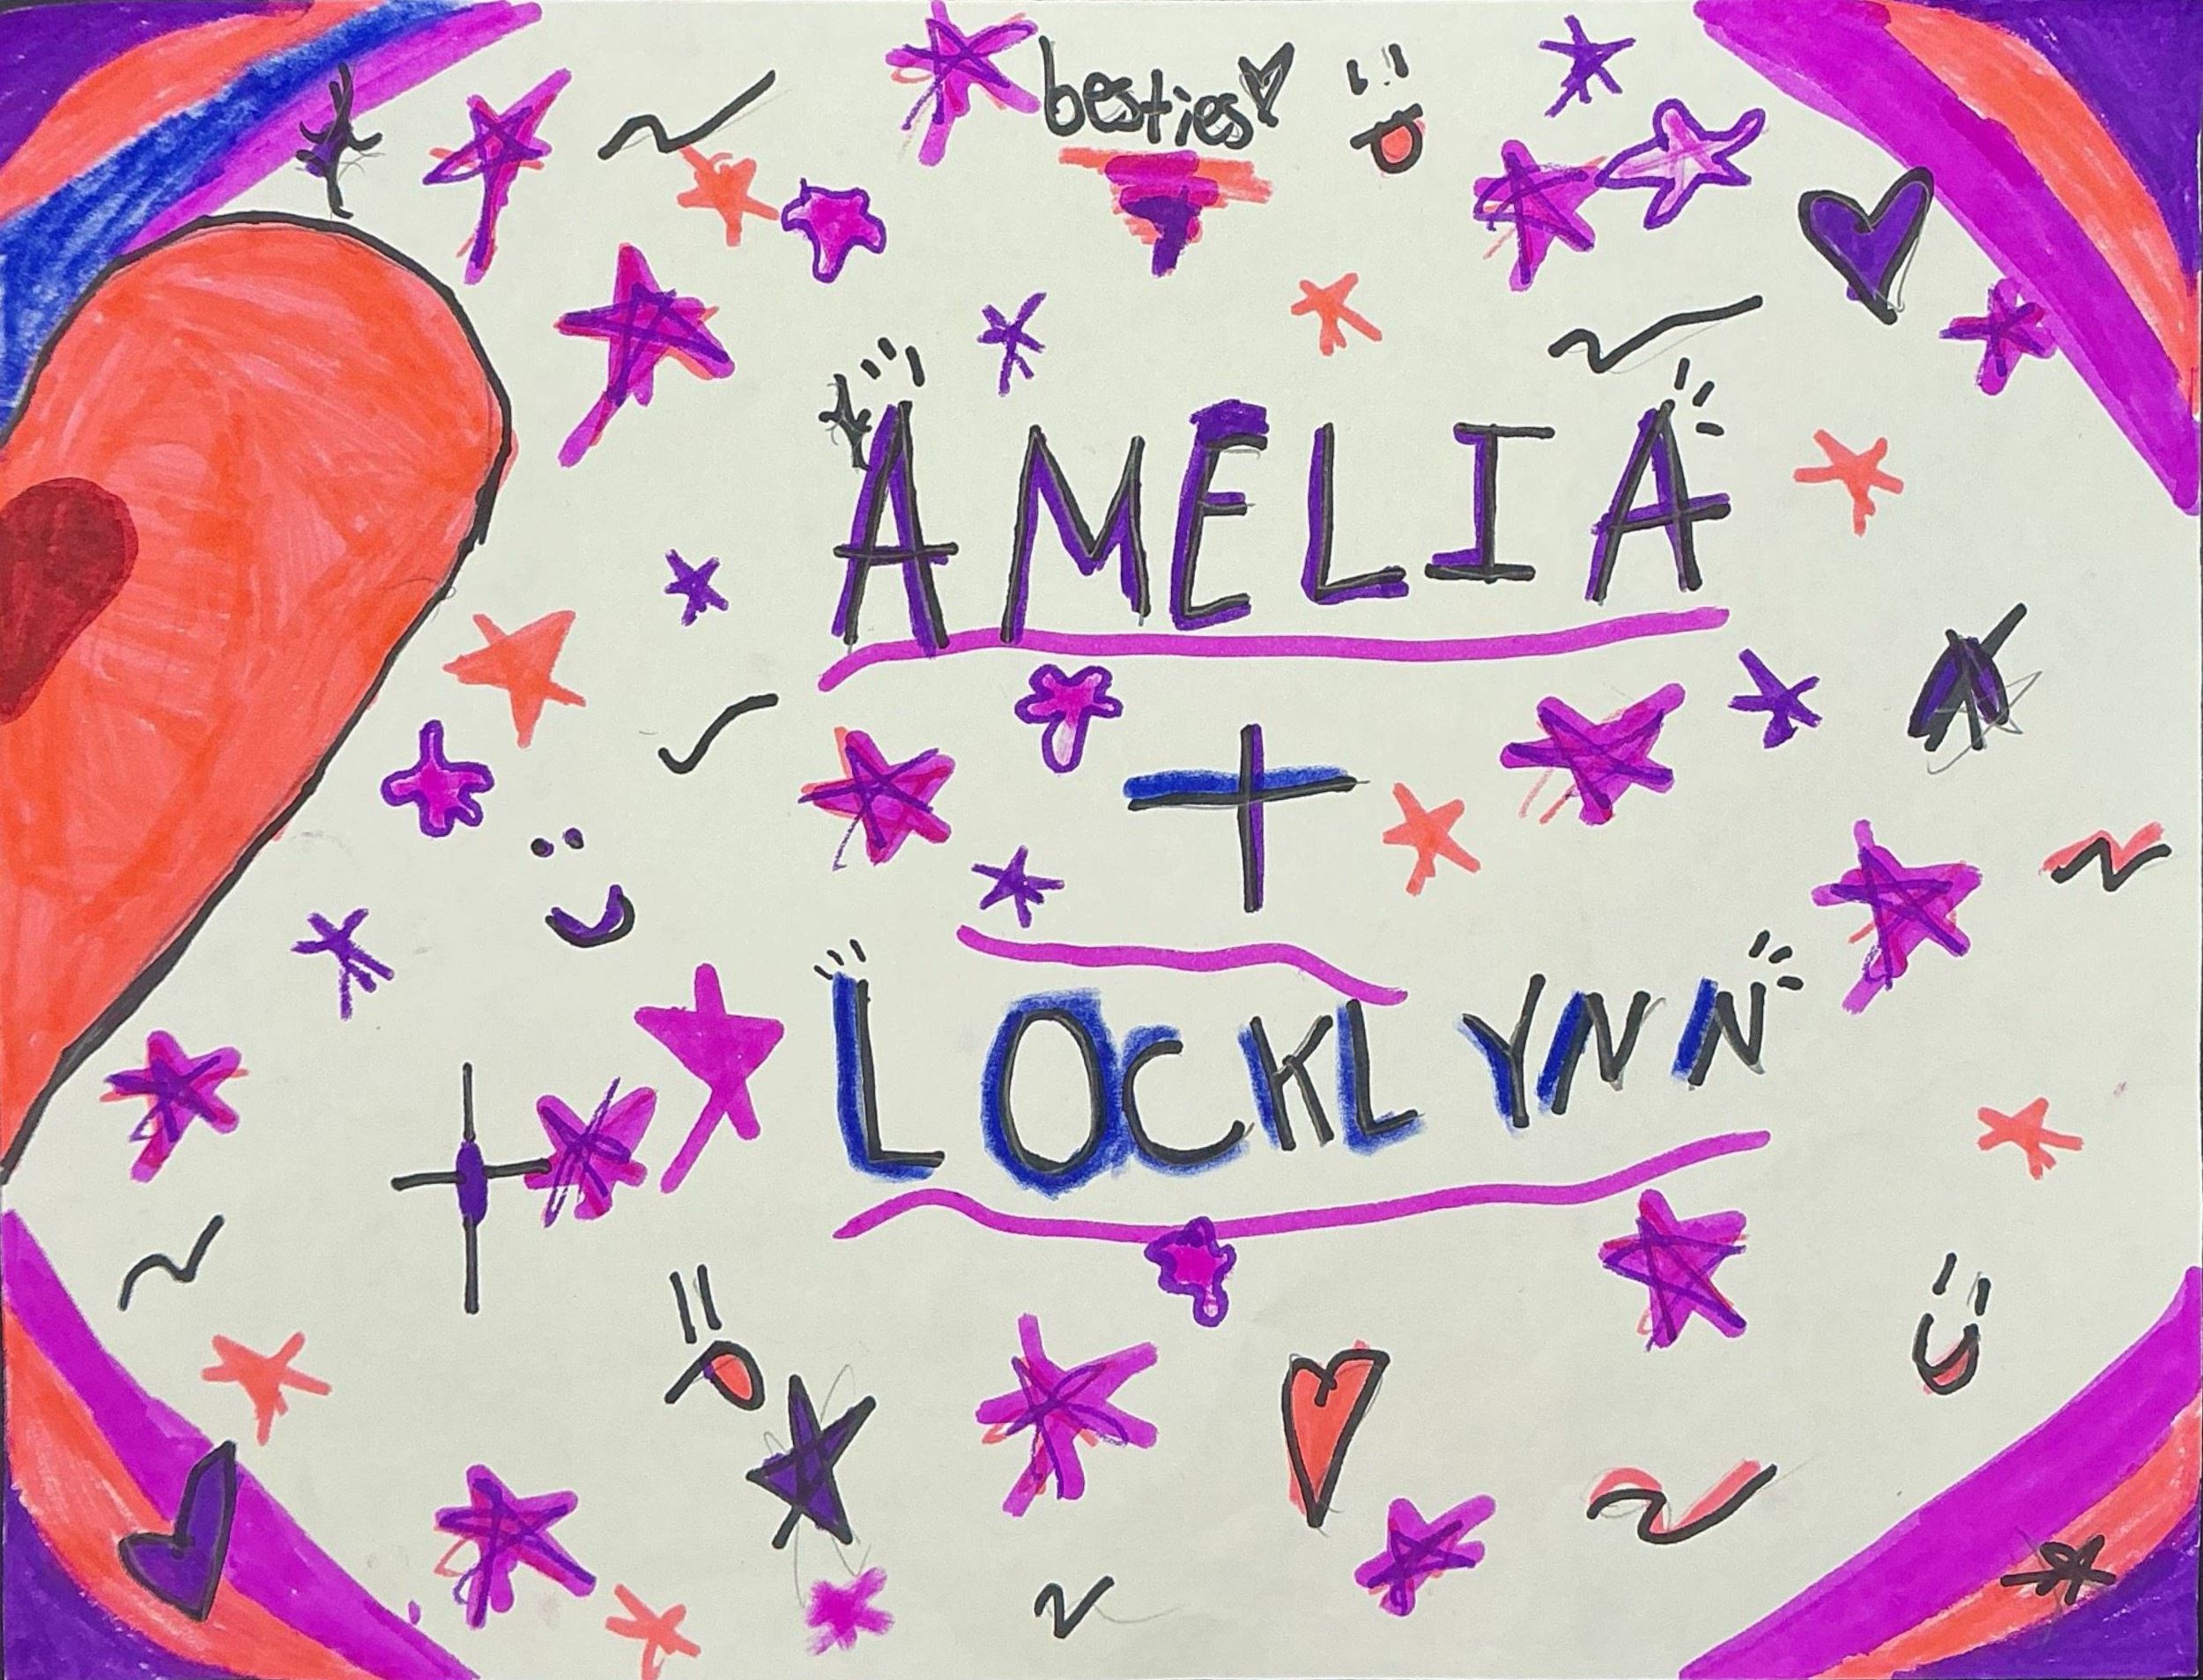 besties♡
AMELIA
+
LOCKLYNN